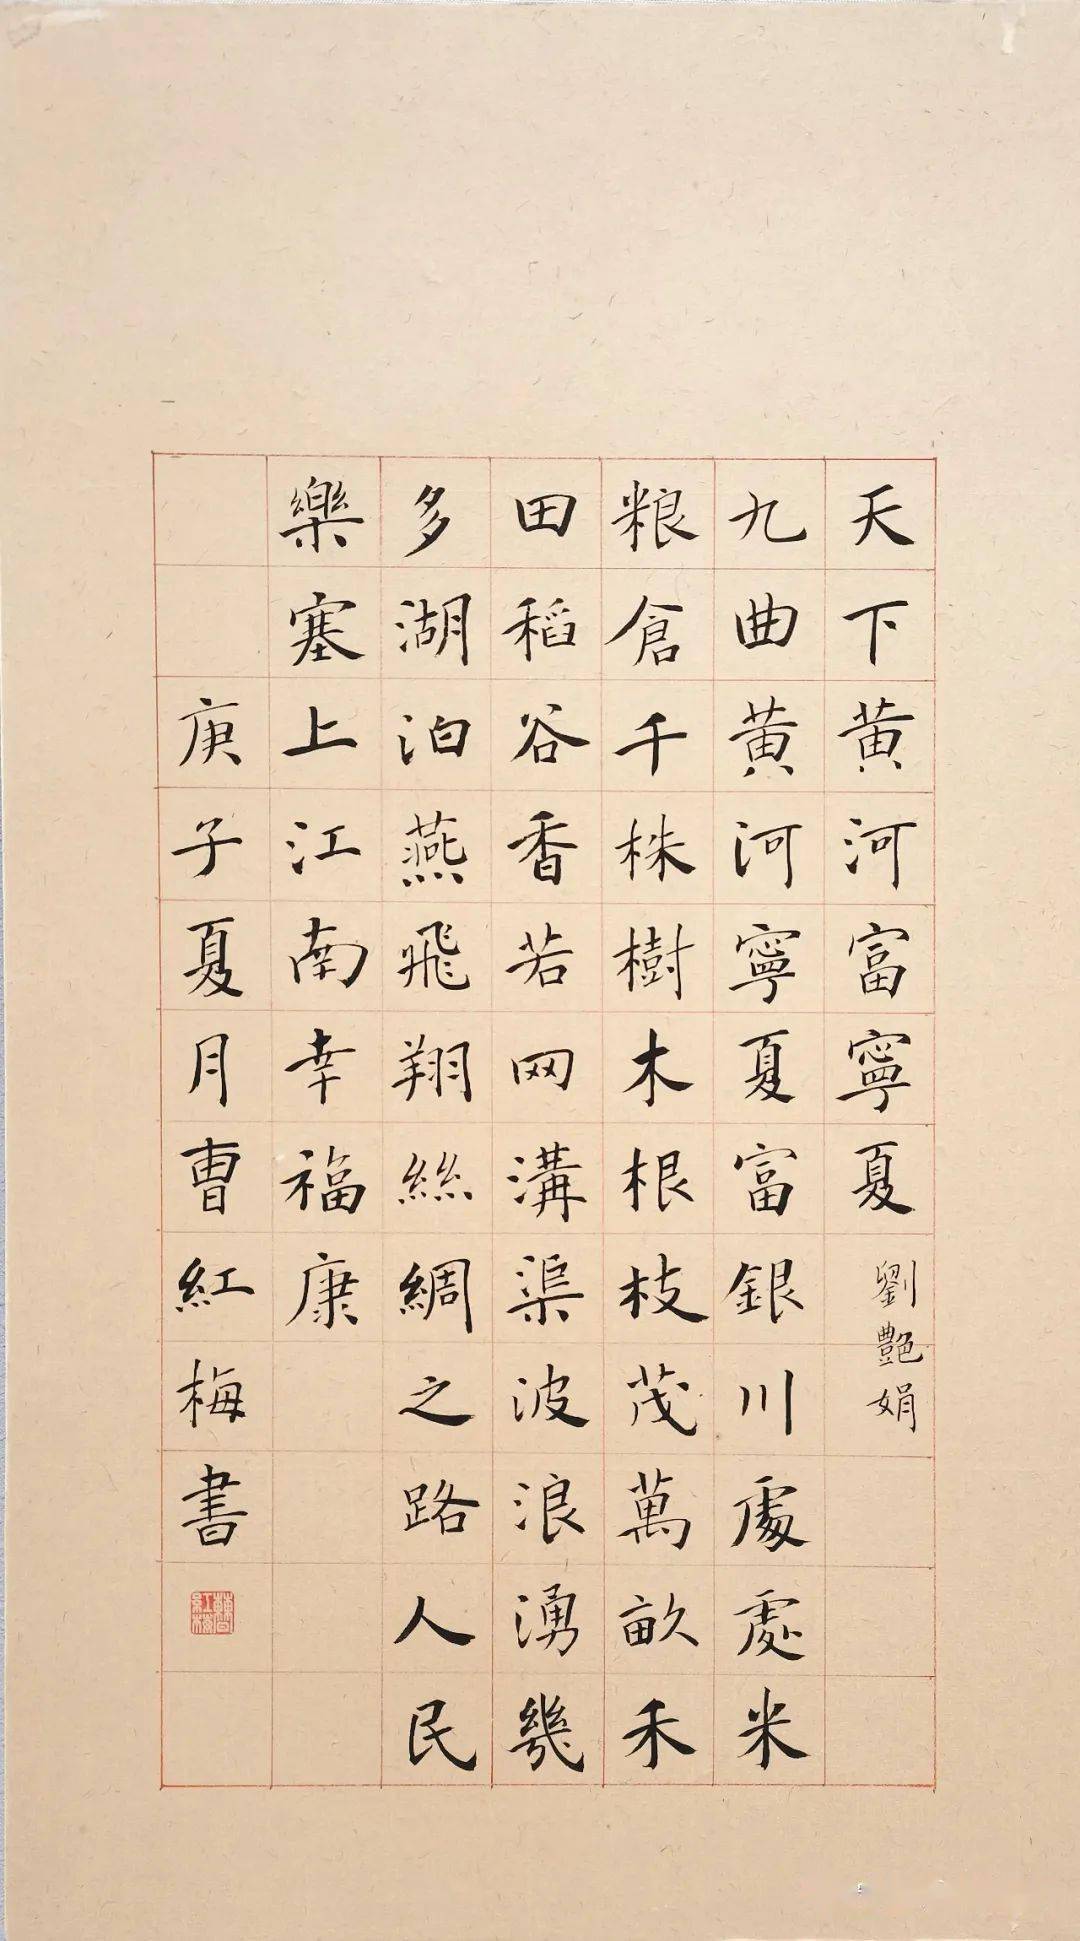 天下黄河富寧夏 劉艷娟
九曲黄河寧夏富銀川處處米
粮倉千株樹木根枝茂萬畝禾
田稻谷香若网溝渠波浪湧幾
多湖泊燕飛翔絲綢之路人民
樂塞上江南幸福康
庚子夏月曹紅梅書